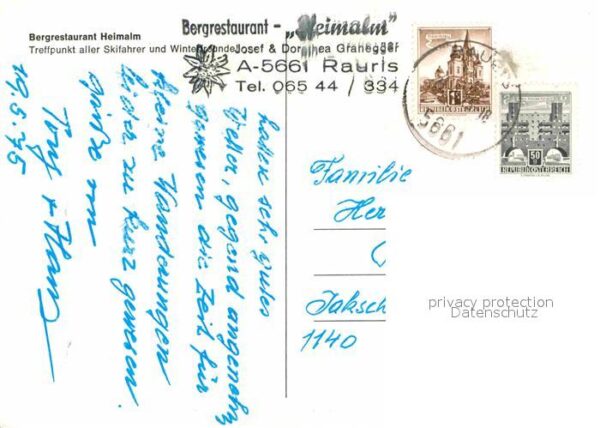 Bergrestaurant Heimalm
Treffpunkt aller Skifahrer und Winterfreunde
Bergrestaurant - „Heimalm"
Josef & Dorothea Granegger
A-5661 Rauris
Tel. 065 44 / 334
5661
REPUBLIK ÖSTERREICH
50
REPUBLIK ÖSTERREICH
haben sehr gutes
Wetter, gegend angenehm
gewesen die Zeit für
kleine Wanderungen
leider zu kurz gewesen.
Grüße von
Tony + Hans
19.5.75
Familie
Her
Jaksch
1140
privacy protection
Datenschutz